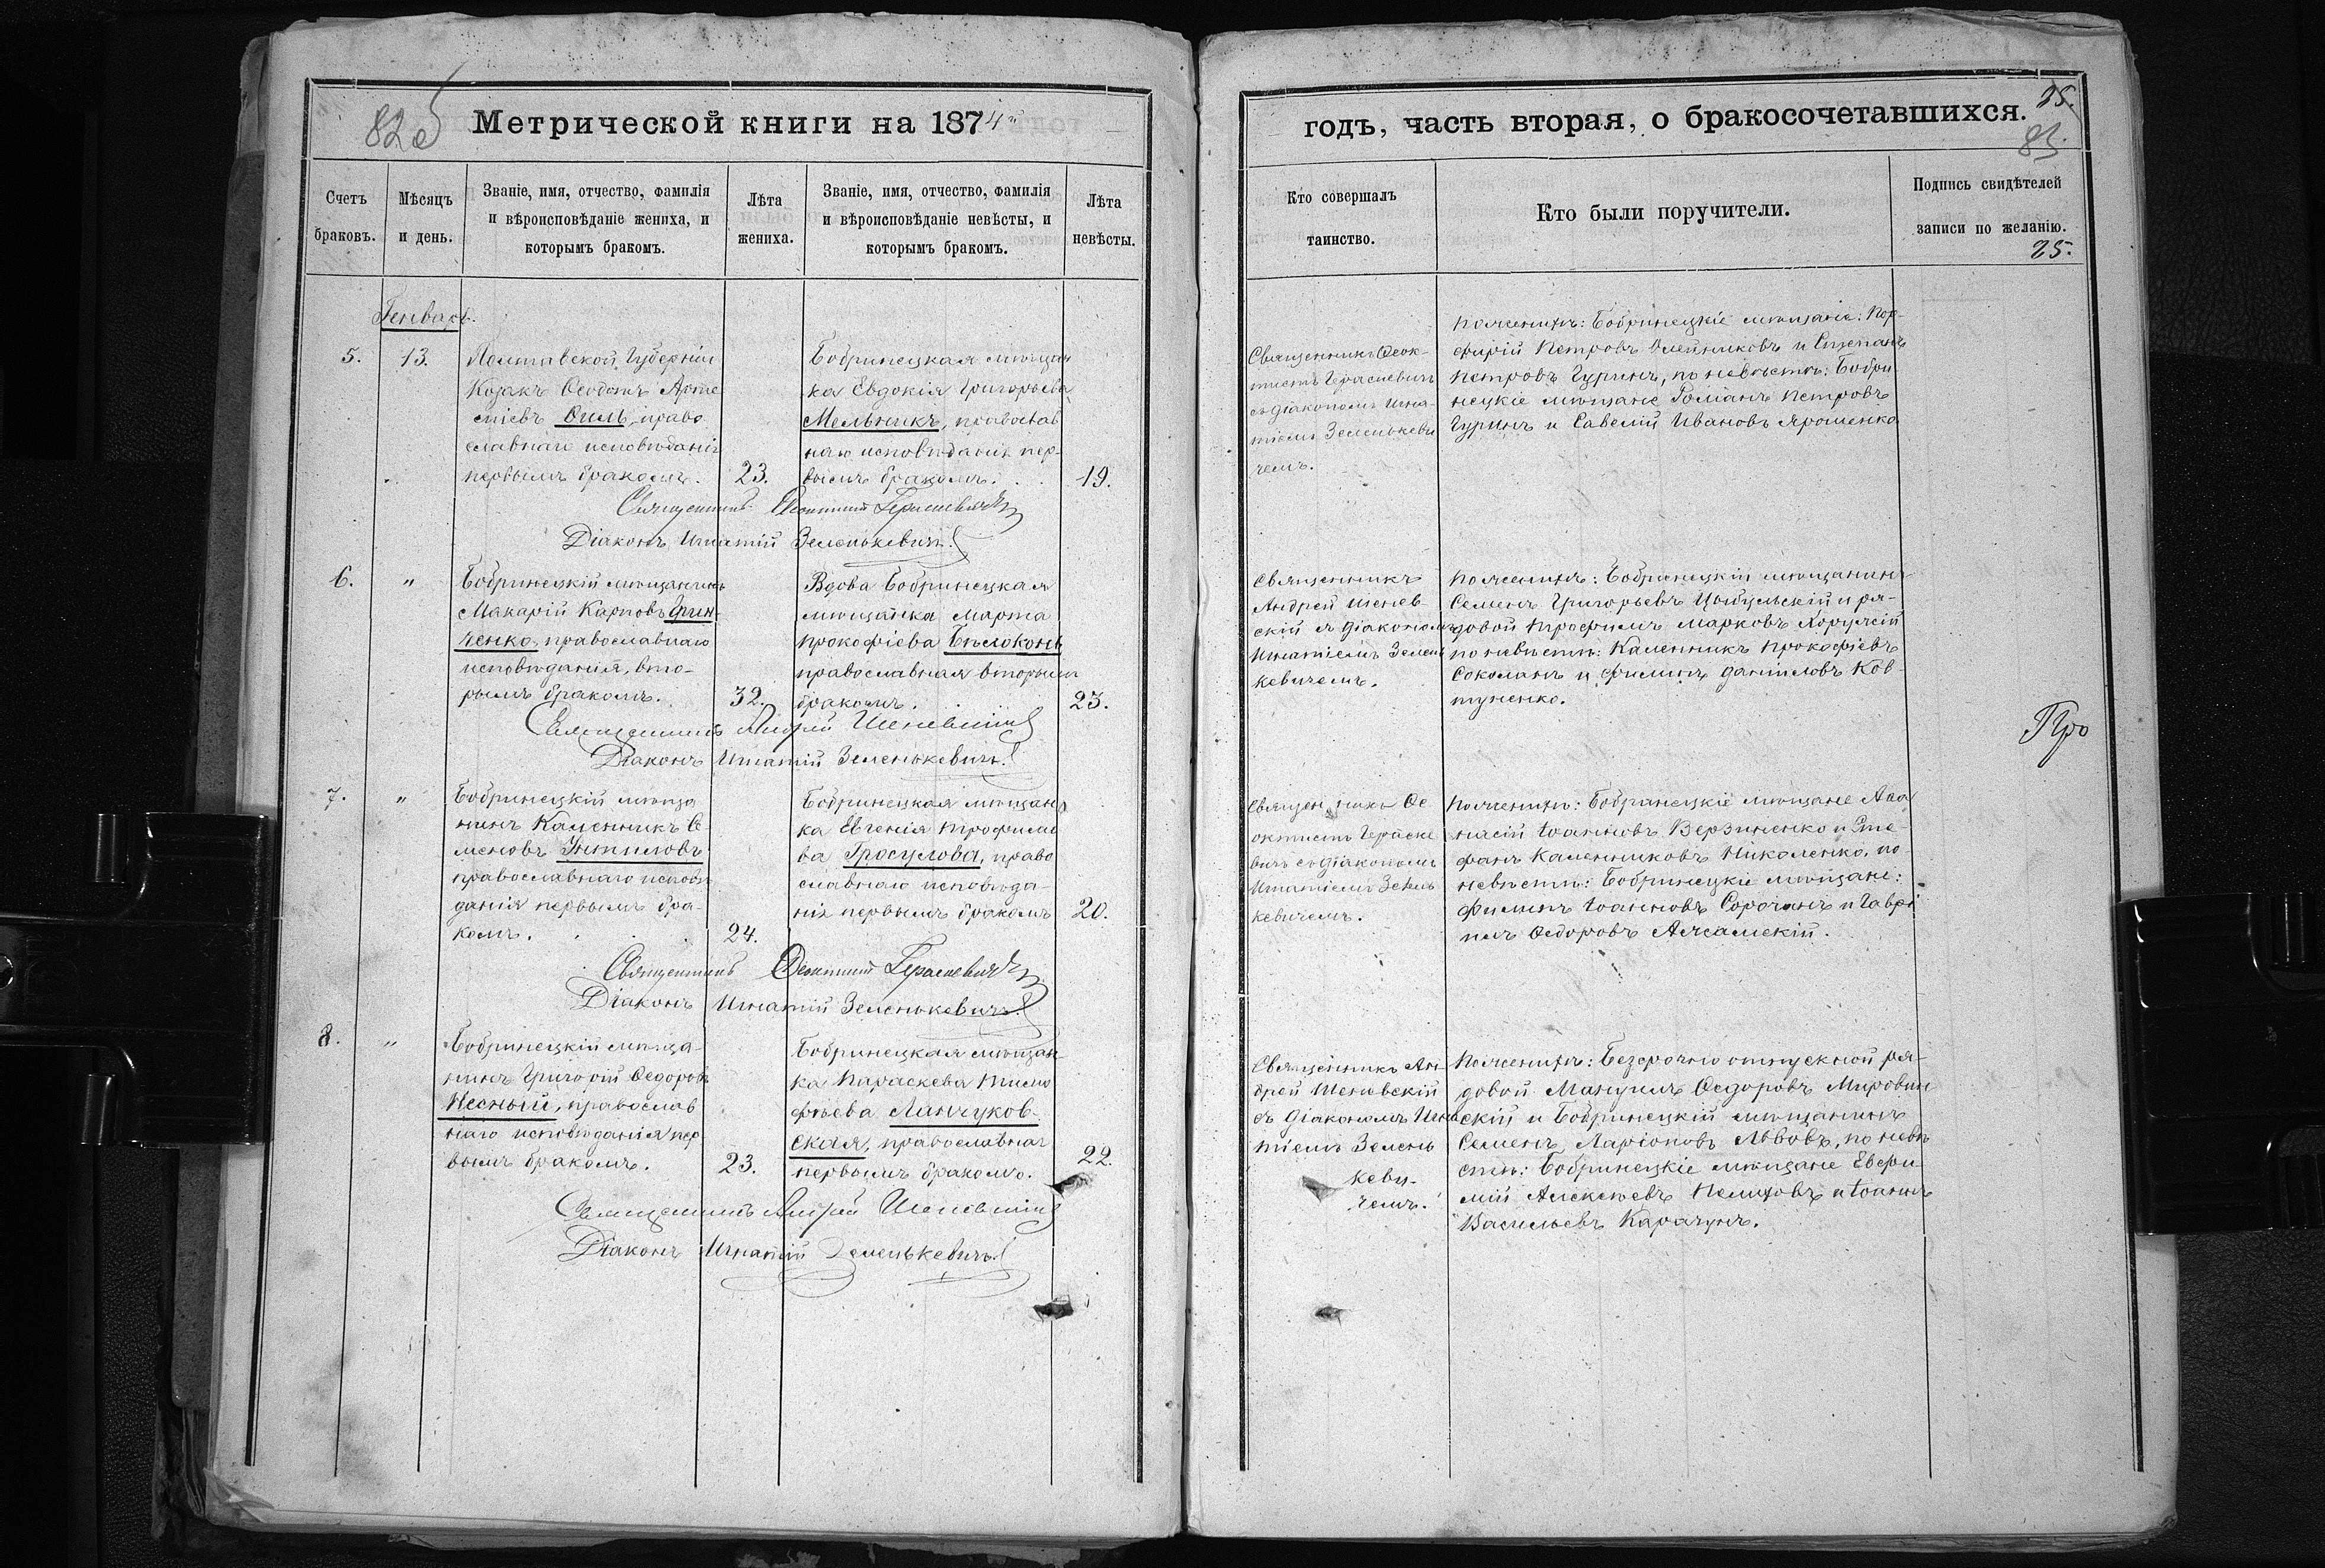 82об
Метрической книги на 1874й
Счетъ браковъ.
Мѣсяцъ и день.
Званіе, имя, отчество, фамилія
и вѣроисповѣданіе жениха, и
которымъ бракомъ.
Лѣта жениха.
Званіе, имя, отчество, фамилія
и вѣроисповѣданіе невѣсты, и
которымъ бракомъ.
Лѣта невѣсты.
Генварь.
5.
13.
Полтавской Губерніи
Козакъ Ѳеодотъ Арте
міевъ православнаго исповѣданія
первымъ бракомъ.
23.
Бобринецкая мѣщан
ка Евдокія Григорьева
Мельникъ, православ
наго исповѣданія пер-
вымъ бракомъ.
19.
Священникъ Ѳеоктистъ Гераскевичъ
Діаконъ Игнатій Зеленькевичъ.
6.
"
Бобринецкій мѣщанинъ
Макарій Карповъ Грин-
ченко, православнаго
исповѣданія, вто-
рымъ бракомъ.
32.
Вдова Бобринецкая
мѣщанка Марта
Прокофіева Бѣлоконь
православная вторымъ
бракомъ.
23.
Священникъ Андрей Шеневскій
Діаконъ Игнатій Зеленькевичъ.
7.
"
Бобринецкій мѣща
нинъ Каленникъ Се-
меновъ
православнаго исповѣ
данія первымъ бра-
комъ.
24.
Бобринецкая мѣщан
ка Евгенія Трофимо
ва Гросулова, право
славнаго исповѣда-
нія первымъ бракомъ
20.
Священникъ Ѳеоктистъ Гераскевичъ
Діаконъ Игнатій Зеленькевичъ.
8.
"
Бобринецкій мѣща-
нинъ Григорій Ѳедоровъ
Песный, православ
наго исповѣданія пер
вымъ бракомъ.
23.
Бобринецкая мѣщан-
ка Параскева Тимо
фѣева Ланчуков-
ская, православная
первымъ бракомъ.
22.
Священникъ Андрей Шеневскій
Діаконъ Игнатій Зеленькевичъ.
годъ, часть вторая, о бракосочетавшихся.
25.
83.
Кто совершалъ
таинство.
Кто были поручители.
Подпись свидѣтелей
записи по желанію.
25.
Священникъ Ѳеок-
тистъ Гераскевичъ
съ діакономъ Игна-
тіемъ Зеленькеви
чемъ.
По женихѣ: Бобринецкіе мѣщане: Пор-
фирій Петровъ Олейниковъ и Степанъ
Петровъ Гуринъ, по невѣстѣ: Бобри
нецкіе мѣщане Романъ Петровъ
Гуринъ и Савелій Ивановъ Ярошенко
Священникъ
Андрей Шенев
скій съ діакономъ
Игнатіемъ Зелень
кевичемъ.
По женихѣ: Бобринецкій мѣщанинъ
Семенъ Григорьевъ Цыбульскій и ря-
довой Трофимъ Марковъ Хоружій
по невѣстѣ: Каленникъ Прокофіевъ
Соколанъ и Филипъ Даніиловъ Ков-
туненко.
Про
Священникъ Ѳе
октистъ Гераске
вичъ съ діакономъ
Игнатіемъ Зелень
кевичемъ.
По женихѣ: Бобринецкіе мѣщане Аѳа
насій Іоанновъ Верзиненко и Сте-
фанъ Каленниковъ Николенко, по
невѣстѣ: Бобринецкіе мѣщане:
Филипъ Іоанновъ Сорочанъ и Гаврі
илъ Ѳедоровъ
Священникъ Ан-
дрей Шеневскій
съ діакономъ Игна
тіемъ Зелень
кеви-
чемъ.
По женихѣ: Безсрочно отпускной ря-
довой Мануилъ Ѳедоровъ Мировин
скій и Бобринецкій мѣщанинъ
Семенъ Ларіоновъ Львовъ, по невѣ
стѣ: Бобринецкіе мѣщане Евфи
мій Алексѣевъ и Іоаннъ
Васильевъ Карачунъ.